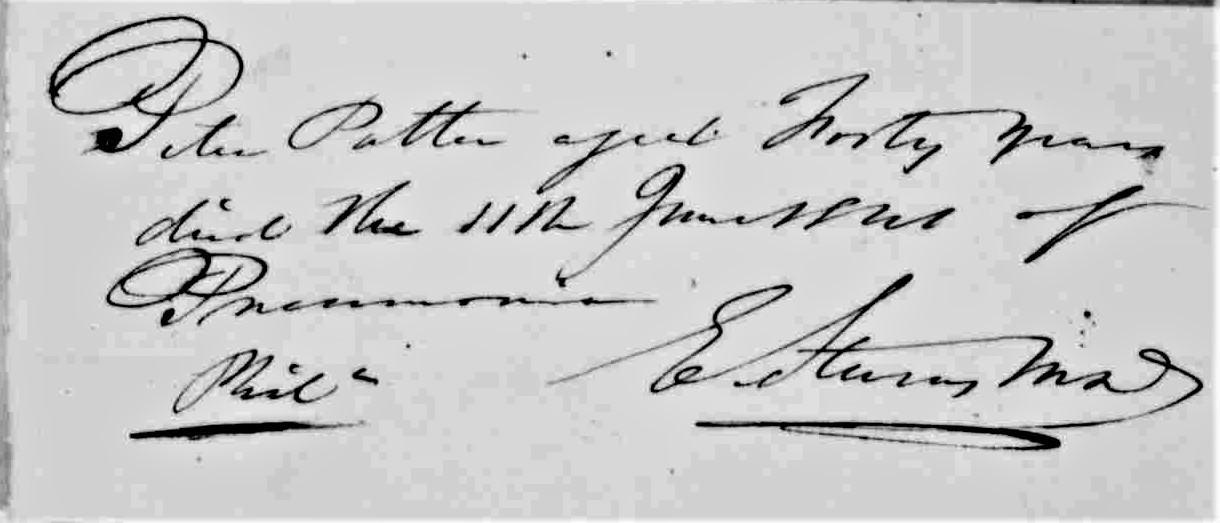 Peter Patten aged Forty Years
died the 11th June of
Pneumonia
Phila
E. M.D